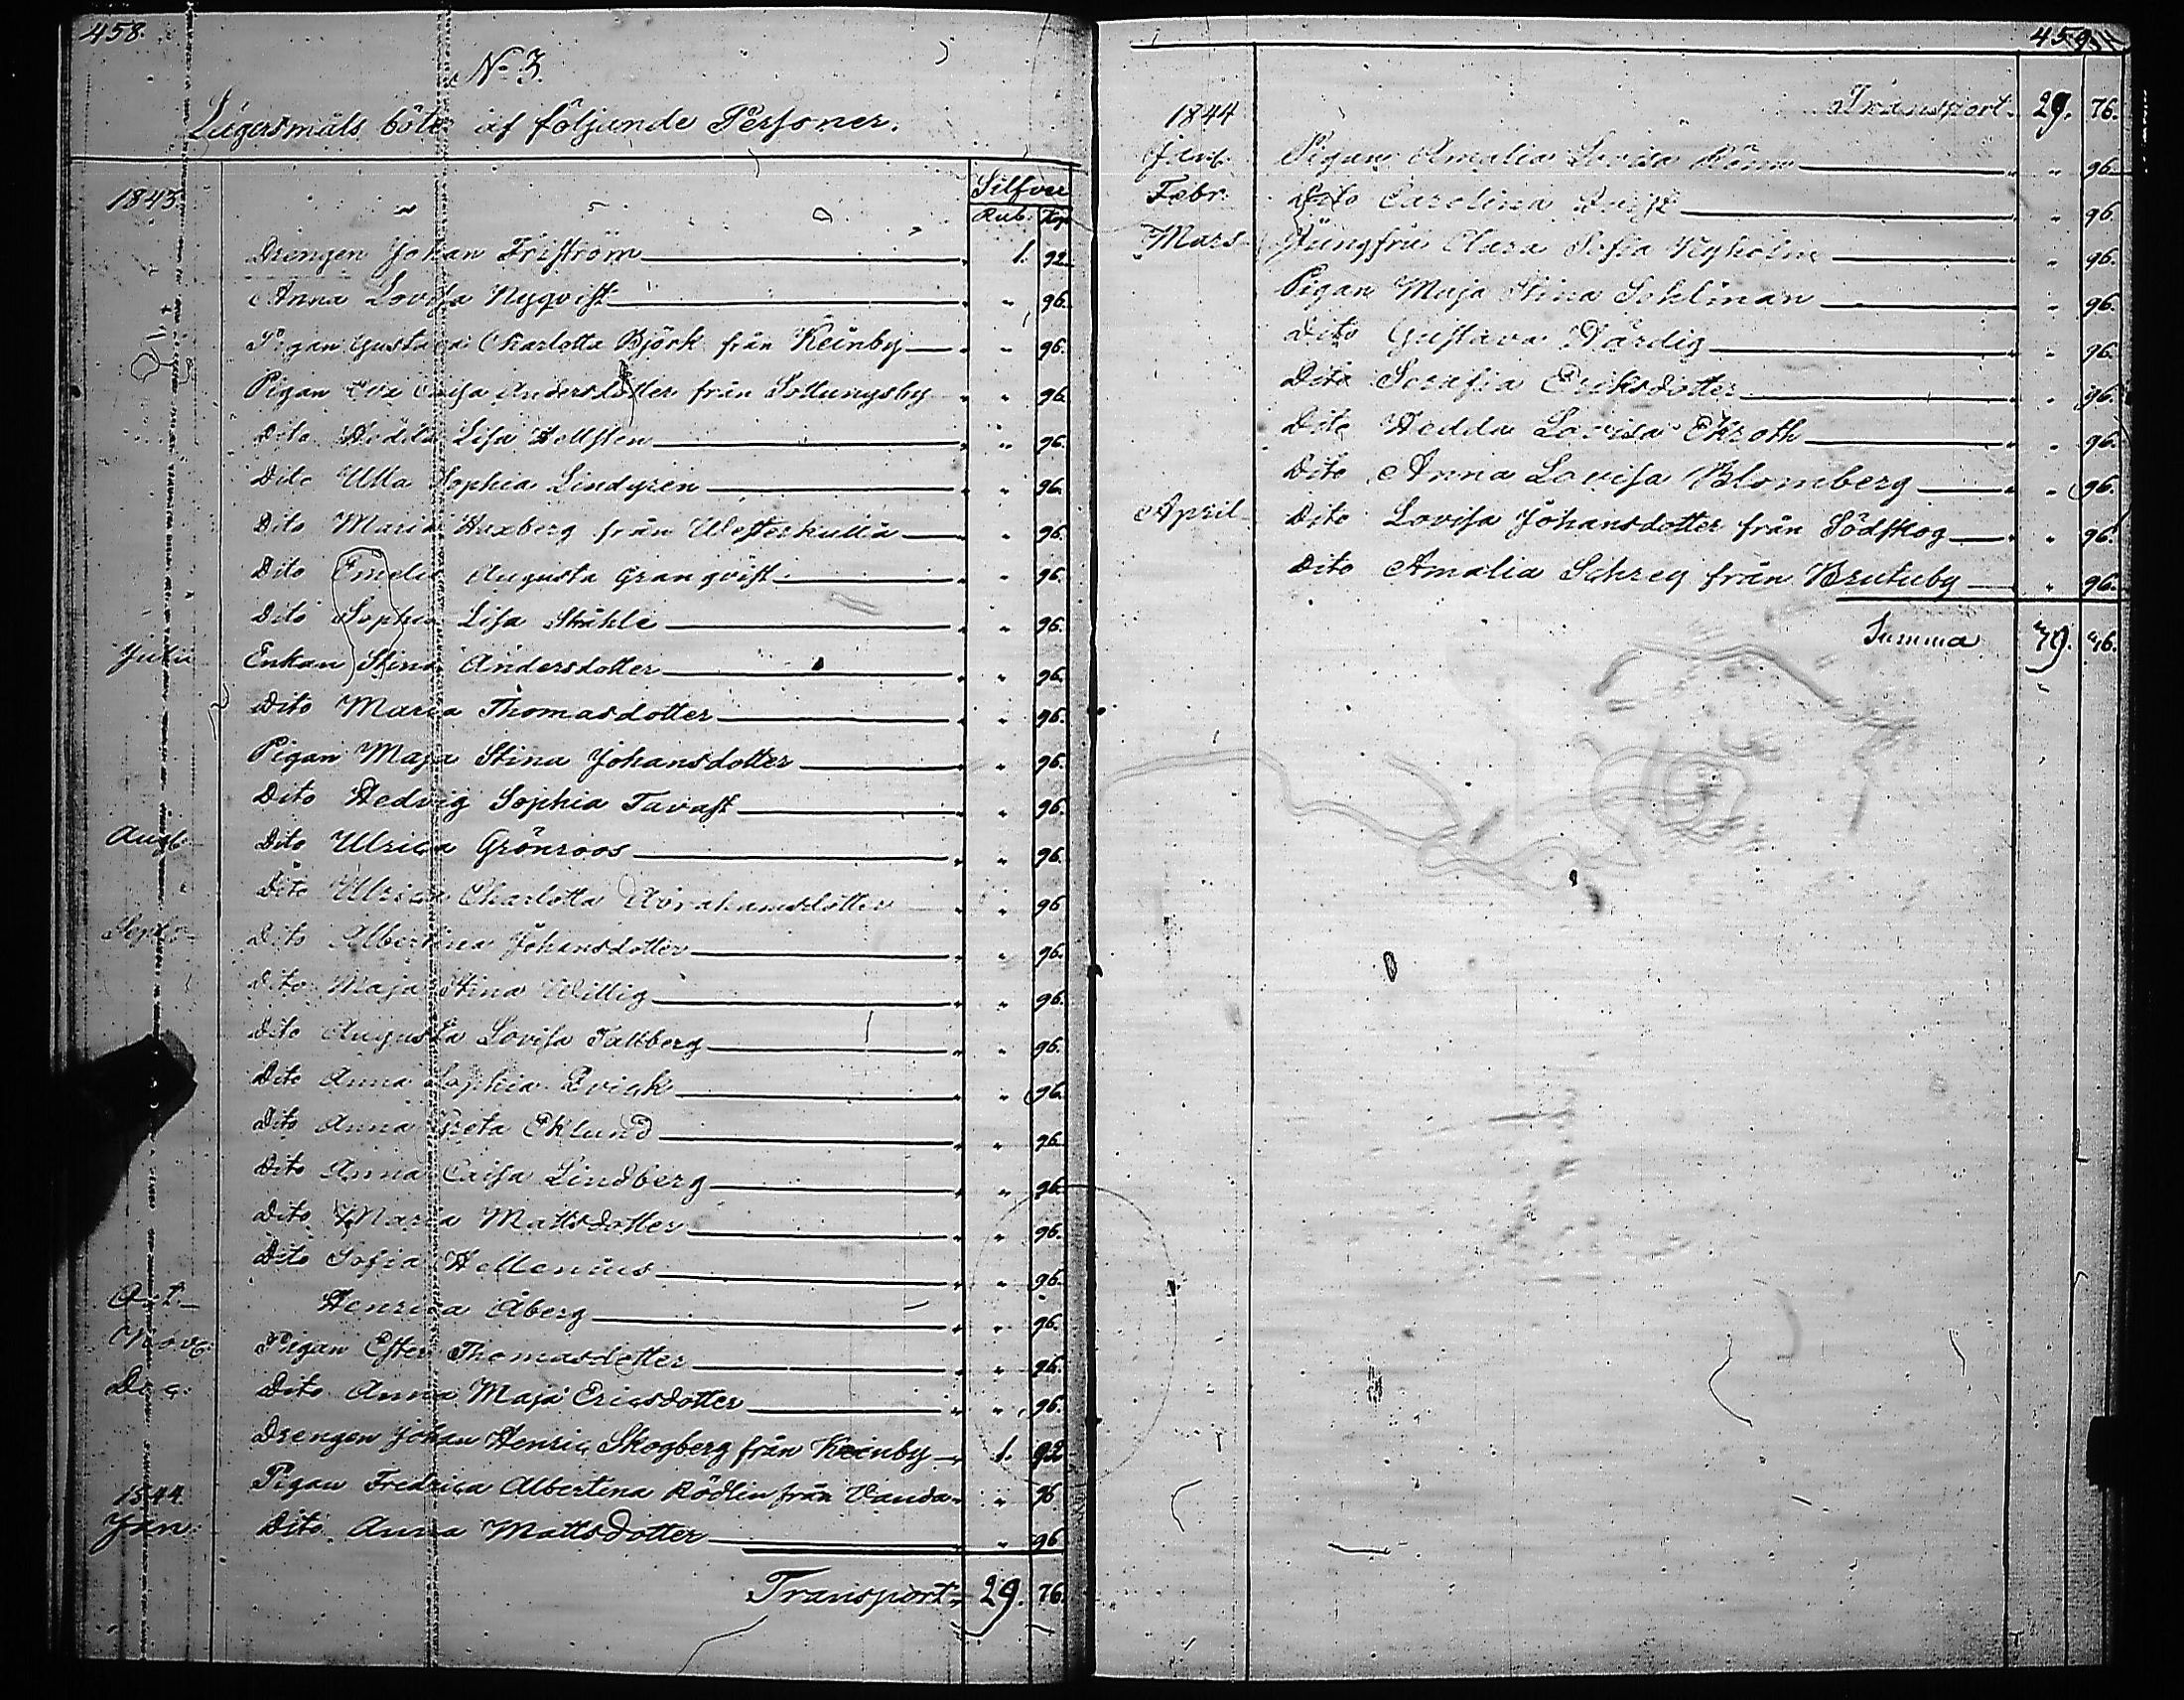 458.
No 3.
Lägersmåls böter af följande Personer.
Silfver
1843
Rub. Kop
Drengen Johan Friström 1. 92.
Anna Lovisa Nyqvist " 96.
Pigan Gustava Charlotta Björk från Keinby " 96.
Pigan Eva Caisa Andersdotter från Sottungsby " 96.
Dito Hedda Lisa Hellsten " 96.
Dito Ulla Sophia Lindgren " 96.
Dito Maria Huxberg från Westerkulla " 96.
Dito Emelie Augusta Granqvist " 96.
Dito Sophia Lisa Ståhle " 96.
Julii Enkan Stina Andersdotter " 96.
Dito Maria Thomasdotter " 96.
Pigan Maja Stina Johansdotter " 96.
Dito Hedvig Sophia Tavast " 96.
Aug. Dito Ulrica Grönroos " 96.
Dito Ulrica Charlotta Abrahamsdotter " 96
Septr Dito Albertina Johansdotter " 96.
Dito Maja Stina Willig " 96.
Dito Augusta Lovisa Tallberg " 96.
Dito Anna Sophia Qvick " 96.
Dito Anna Greta Eklund " 96.
Dito Anna Caisa Lindberg " 96.
Dito Maria Mattsdotter " 96.
Dito Sofia Hellenius " 96.
Oct. Henrica Åberg " 96.
Nov. Pigan Ester Thomasdotter " 96.
Dec. Dito Anna Maja Ericsdotter " 96.
Drengen Johan Henric Skogberg från Keinby 1. 92
Pigan Fredrica Albertina Rödlin från Vanda " 96
1844.
Jan. Dito Anna Mattsdotter " 96
Transport 29. 76.
459.
Transport 29. 76.
1844
Jan. Pigan Amalia Lovisa Rönn " 96.
Febr. Dito Carolina " 96.
Mars Jungfru Clara Sofia Nyholm " 96.
Pigan Maja Stina Sohlman " 96.
Dito Gustava Härdig " 96.
Dito Serafia Eriksdotter " 96.
Dito Hedda Lovisa Ekroth " 96.
Dito Anna Lovisa Blomberg " 96.
April Dito Lovisa Johansdotter från Södskog " 96.
Dito Amalia Schrey från Brutuby " 96.
Summa 79. 76.